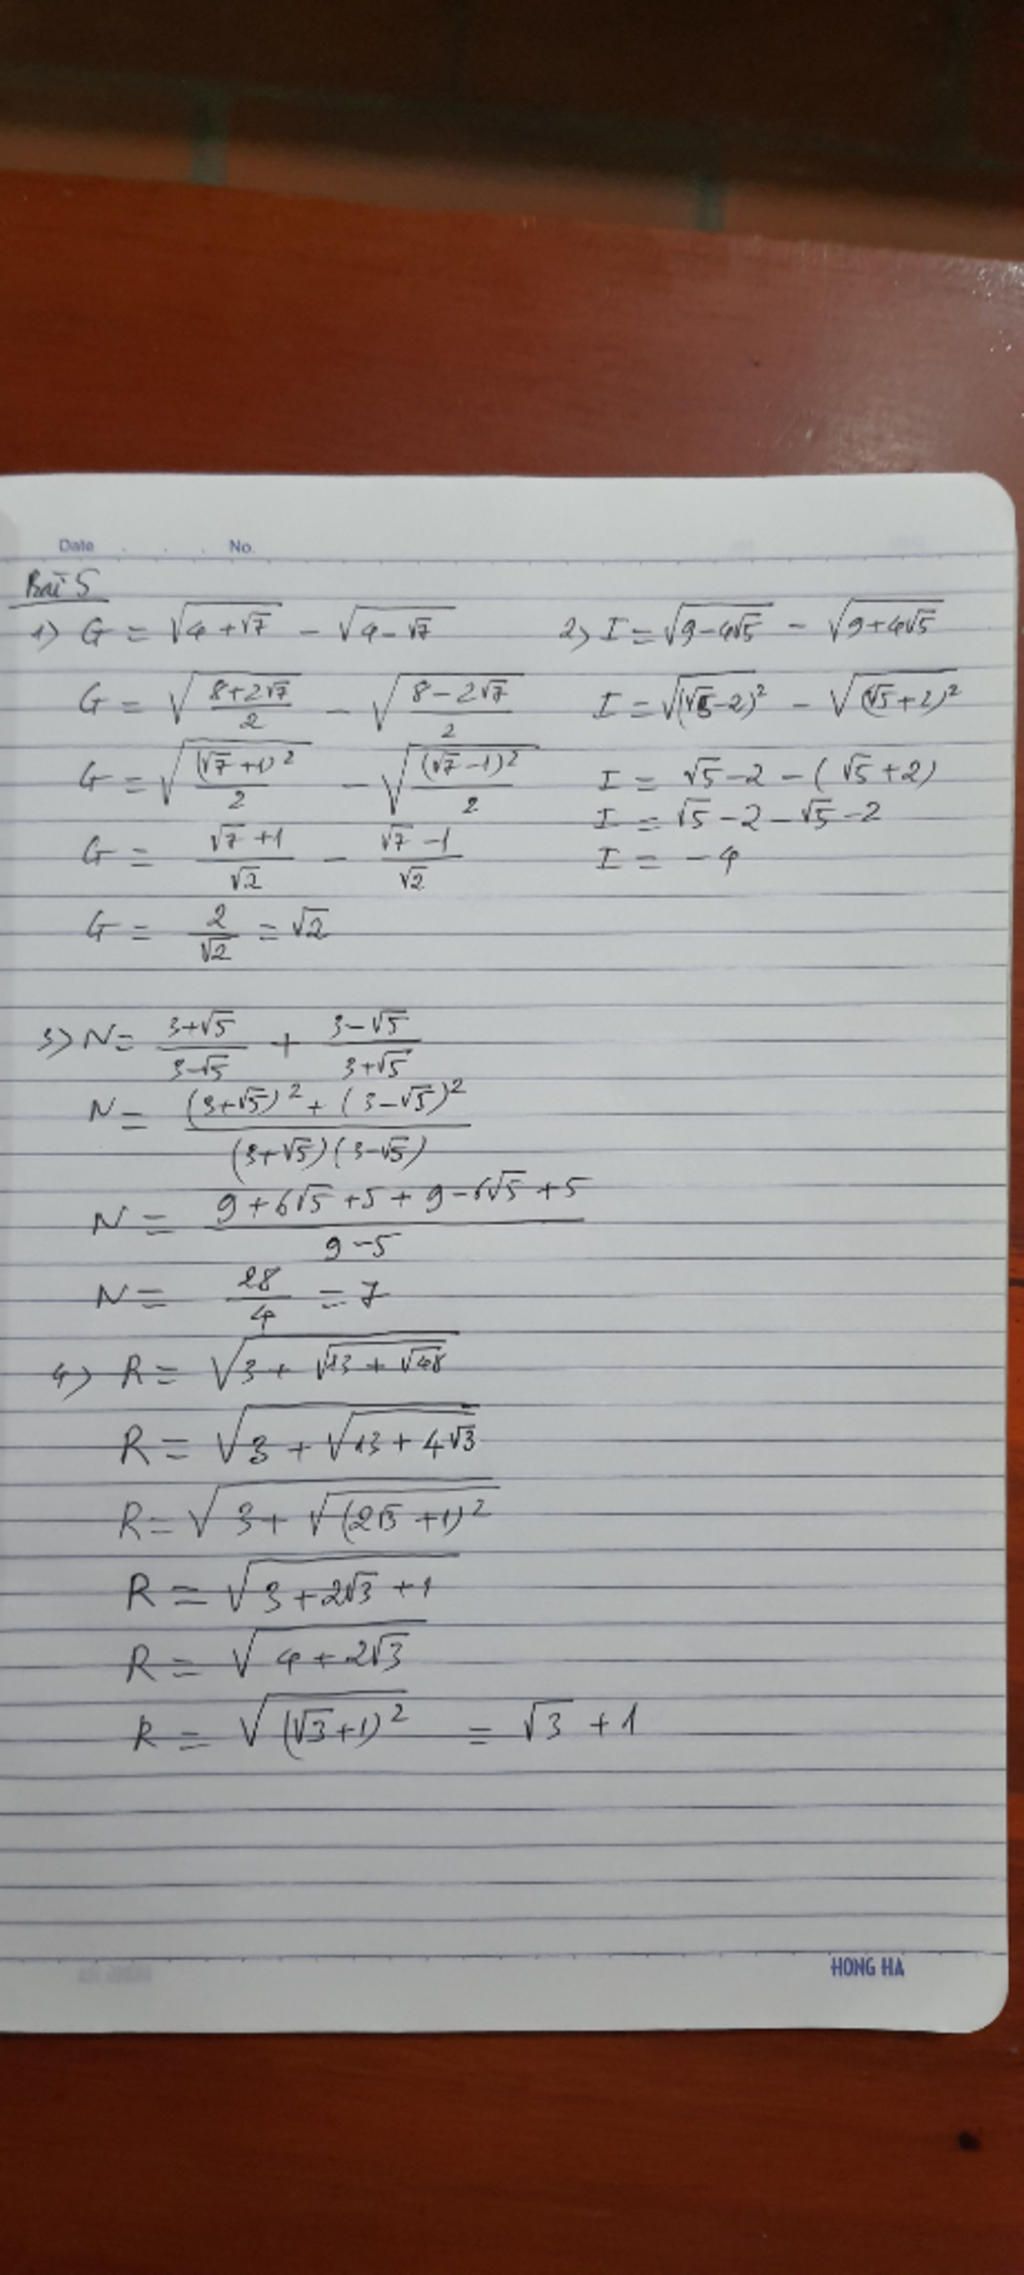 Date No.
Bài 5
1) G = √(4+√7) − √(4−√7)
G = √((8+2√7)/2) − √((8−2√7)/2)
G = √((√7+1)²/2) − √((√7−1)²/2)
G = (√7+1)/√2 − (√7−1)/√2
G = 2/√2 = √2
2) I = √(9−4√5) − √(9+4√5)
I = √((√5−2)²) − √((√5+2)²)
I = √5−2−(√5+2)
I = √5−2−√5−2
I = −4
3) N = (3+√5)/(3−√5) + (3−√5)/(3+√5)
N = ((3+√5)²+(3−√5)²)/((3+√5)(3−√5))
N = (9+6√5+5+9−6√5+5)/(9−5)
N = 28/4 = 7
4) R = √(3+√(13+√48))
R = √(3+√(13+4√3))
R = √(3+√((2√3+1)²))
R = √(3+2√3+1)
R = √(4+2√3)
R = √((√3+1)²) = √3+1
HONG HA